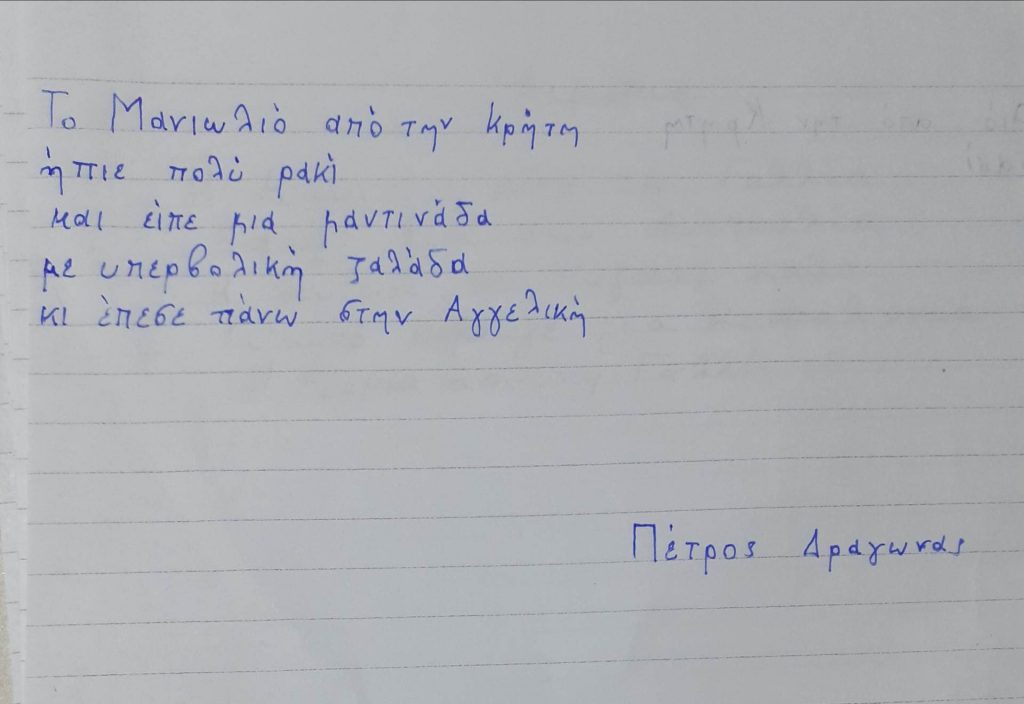 Το Μανιωλιό από την Κρήτη
ήπιε πολύ ρακί
και είπε μια μαντινάδα
με υπερβολική ζαλάδα
κι έπεσε πάνω στην Αγγελική
Πέτρος Δραγωνας